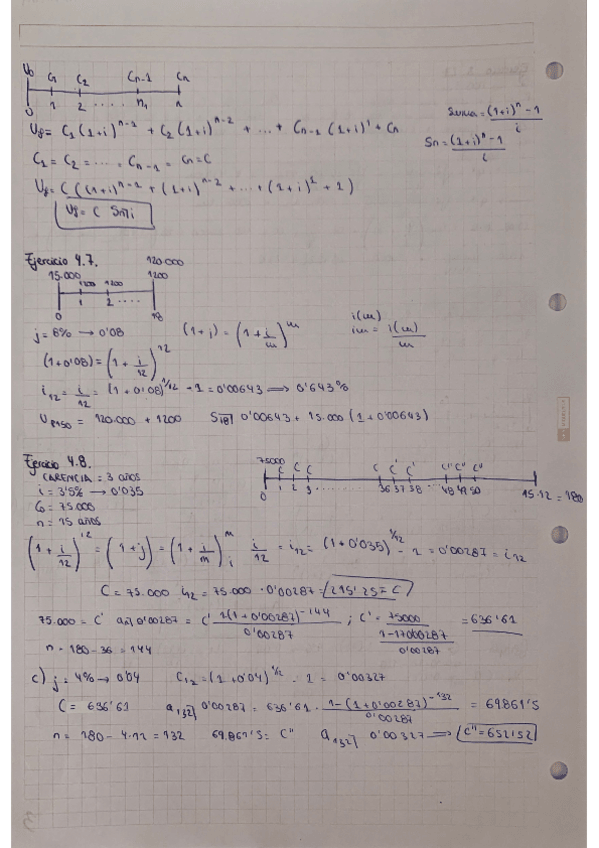 V0 C1 C2 Cn-1 Cn
0 1 2 .... n-1 n
Suma = (1+i)^n - 1 / i
Vf = C1 (1+i)^n-1 + C2 (1+i)^n-2 + ... + Cn-1 (1+i)^1 + Cn
Sn = (1+i)^n - 1 / i
C1 = C2 = .... = Cn-1 = Cn = C
Vf = C ((1+i)^n-1 + (1+i)^n-2 + ... + (1+i)^1 + 1)
Vf = C Sn¬i
Ejercicio 4.7. 120.000
15.000 1200 1200 1200
0 1 2 .... 18
j = 8% → 0'08 (1+j) = (1 + i/m)^m i(m) im = i(m)/m
(1+0'08) = (1 + i/12)^12
i12 = i/12 = (1+0'08)^1/12 - 1 = 0'00643 ⟹ 0'643%
= 120.000 + 1200 S18¬ 0'00643 + 15.000 (1+0'00643)
Ejercicio 4.8.
CARENCIA = 3 años
75000
C C C C C' C' C'' C'' C''
0 1 2 3 ........ 36 37 38 .... 48 49 50 15·12 = 180
i = 3'5% → 0'035
C0 = 75.000
n = 15 años
(1 + i/12)^12 = (1+j) = (1 + i/m)^m ; i/12 = i12 = (1+0'035)^1/12 - 1 = 0'00287 = i12
C = 75.000 i12 = 75.000 · 0'00287 = 215'25 = C
75.000 = C' an¬ 0'00287 = C' 1-(1+0'00287)^-144 / 0'00287 ; C' = 75000 / = 636'61
n = 180 - 36 = 144
c) j = 4% → 0'04 C12 = (1+0'04)^1/12 - 1 = 0'00327
C = 636'61 a132¬ 0'00287 = 636'61 · 1-(1+0'00287)^-132 / 0'00287 = 69861'5
n = 180 - 4·12 = 132 69.861'5 = C'' a132¬ 0'00327 ⟹ C'' = 652'52